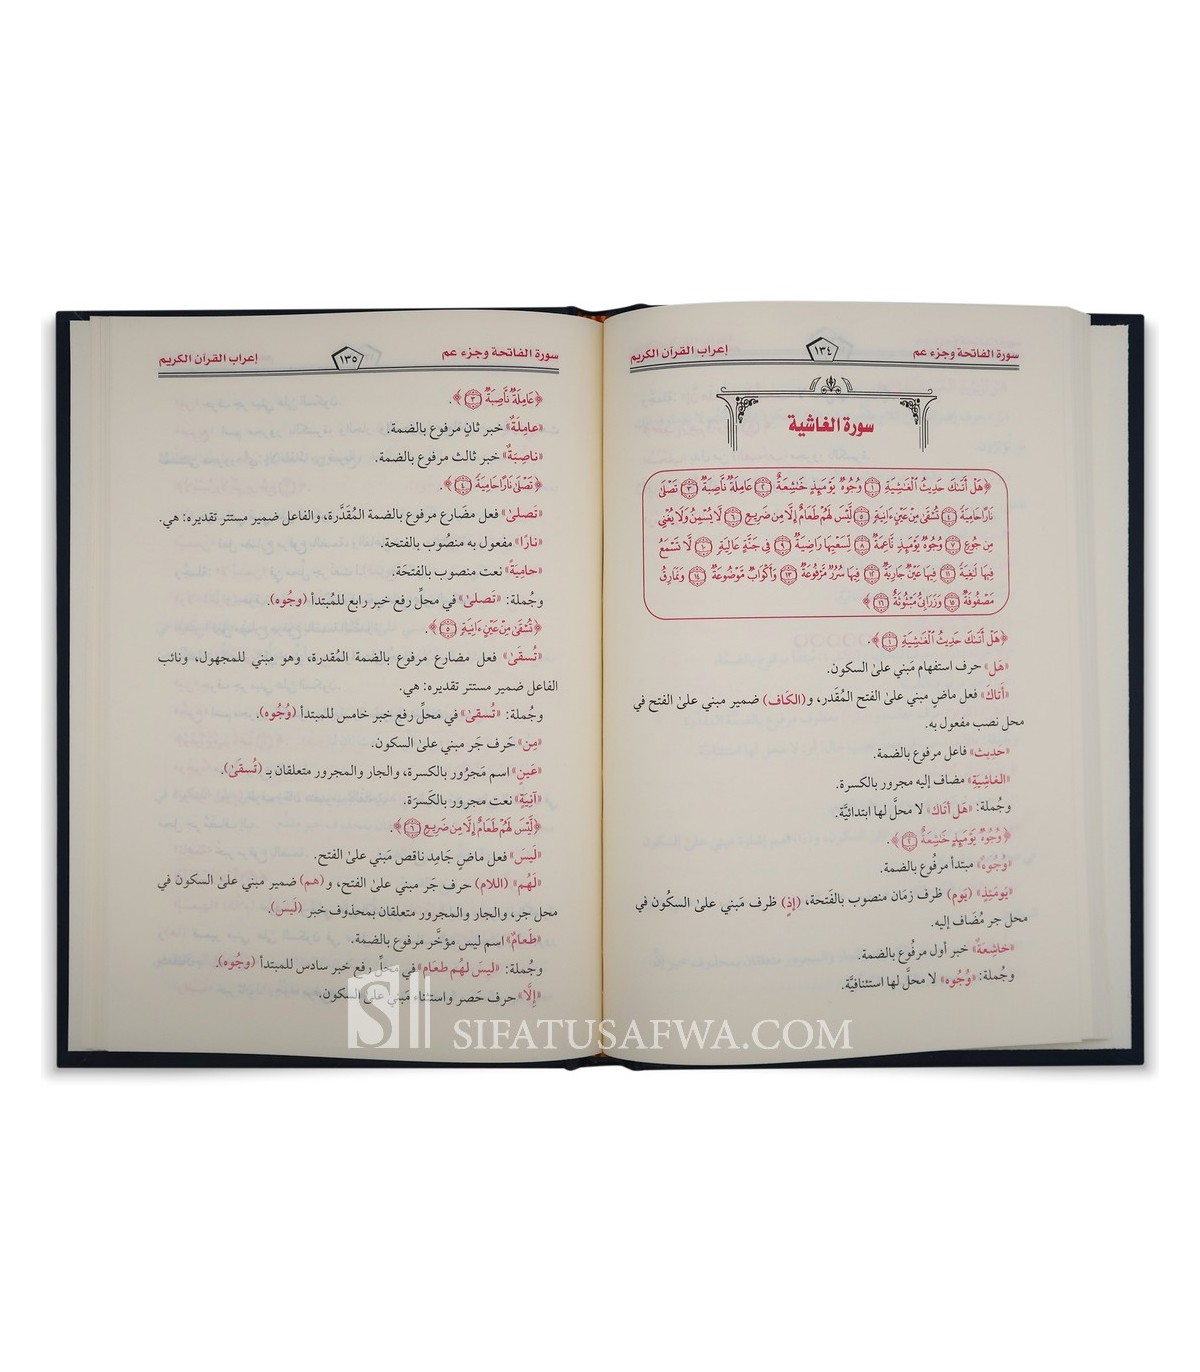 سورة الفاتحة وجزء عم ١٣٤ إعراب القرآن الكريم
سورة الغاشية
﴿هَلْ أَتَىٰكَ حَدِيثُ الْغَٰشِيَةِ ١ وُجُوهٌ يَوْمَئِذٍ خَٰشِعَةٌ ٢ عَامِلَةٌ نَّاصِبَةٌ ٣ تَصْلَىٰ
نَارًا حَامِيَةً ٤ تُسْقَىٰ مِنْ عَيْنٍ ءَانِيَةٍ ٥ لَّيْسَ لَهُمْ طَعَامٌ إِلَّا مِن ضَرِيعٍ ٦ لَّا يُسْمِنُ وَلَا يُغْنِى
مِن جُوعٍ ٧ وُجُوهٌ يَوْمَئِذٍ نَّاعِمَةٌ ٨ لِّسَعْيِهَا رَاضِيَةٌ ٩ فِى جَنَّةٍ عَالِيَةٍ ١٠ لَّا تَسْمَعُ
فِيهَا لَٰغِيَةً ١١ فِيهَا عَيْنٌ جَارِيَةٌ ١٢ فِيهَا سُرُرٌ مَّرْفُوعَةٌ ١٣ وَأَكْوَابٌ مَّوْضُوعَةٌ ١٤ وَنَمَارِقُ
مَصْفُوفَةٌ ١٥ وَزَرَابِىُّ مَبْثُوثَةٌ ١٦﴾
﴿هَلْ أَتَىٰكَ حَدِيثُ الْغَٰشِيَةِ ١﴾.
«هَل» حرف استفهام مَبني علىٰ السكون.
«أَتاكَ» فعل ماضٍ مبني علىٰ الفتح المُقَدر، و(الكَاف) ضمير مبني علىٰ الفتح في
محل نصب مفعول به.
«حَدِيث» فاعل مرفوع بالضمة.
«الغَاشِيَةِ» مضاف إليه مجرور بالكسرة.
وجُملة: «هَل أتاك» لا محلَّ لها ابتدائيَّة.
﴿وُجُوهٌ يَوْمَئِذٍ خَٰشِعَةٌ ٢﴾.
«وُجُوهٌ» مبتدأ مرفُوع بالضمة.
«يَومَئِذٍ» (يَوم) ظرف زمَان منصوب بالفَتحة، (إذٍ) ظرف مَبني علىٰ السكُون في
محل جر مُضَاف إليه.
«خاشِعَةٌ» خبر أول مرفُوع بالضمة.
وجُملة: «وُجُوه» لا محلَّ لها استئنافيَّة.
سورة الفاتحة وجزء عم ١٣٥ إعراب القرآن الكريم
﴿عَامِلَةٌ نَّاصِبَةٌ ٣﴾.
«عامِلَةٌ» خبر ثانٍ مرفوع بالضمة.
«ناصِبَةٌ» خبر ثالث مرفوع بالضمة.
﴿تَصْلَىٰ نَارًا حَامِيَةً ٤﴾.
«تَصلىٰ» فعل مضارع مرفوع بالضمة المُقَدَّرة، والفاعل ضمير مستتر تقديره: هي.
«نارًا» مفعول به منصُوب بالفتحة.
«حامِيَةً» نعت منصوب بالفتحَة.
وجُملة: «تَصلىٰ» في محلِّ رفع خبر رابع للمُبتدأ (وجُوه).
﴿تُسْقَىٰ مِنْ عَيْنٍ ءَانِيَةٍ ٥﴾.
«تُسقَىٰ» فعل مضارع مرفوع بالضمة المُقدرة، وهو مبني للمجهول، ونائب
الفاعل ضمير مستتر تقديره: هي.
وجُملة: «تُسقىٰ» في محلِّ رفع خبر خامس للمبتدأ (وُجُوه).
«مِن» حَرف جَر مبني علىٰ السكون.
«عَينٍ» اسم مَجرُور بالكسرة، والجار والمجرور متعلقان بـ (تُسقَىٰ).
«آنِيَةٍ» نعت مجرور بالكَسرَة.
﴿لَّيْسَ لَهُمْ طَعَامٌ إِلَّا مِن ضَرِيعٍ ٦﴾.
«لَيسَ» فعل ماضٍ جَامِد ناقص مَبني علىٰ الفتح.
«لَهُم» (اللام) حرف جَر مبني علىٰ الفتح، و(هم) ضمير مبني علىٰ السكون في
محل جر، والجار والمجرور متعلقان بمحذوف خبر (لَيسَ).
«طَعامٌ» اسم ليس مؤخَّر مرفوع بالضمة.
وجُملة: «ليسَ لهُم طعَام» في محلِّ رفع خبر سادس للمبتدأ (وجُوه).
«إِلَّا» حرف حَصر واستثناء مَبني علىٰ السكون.
SIFATUSAFWA.COM